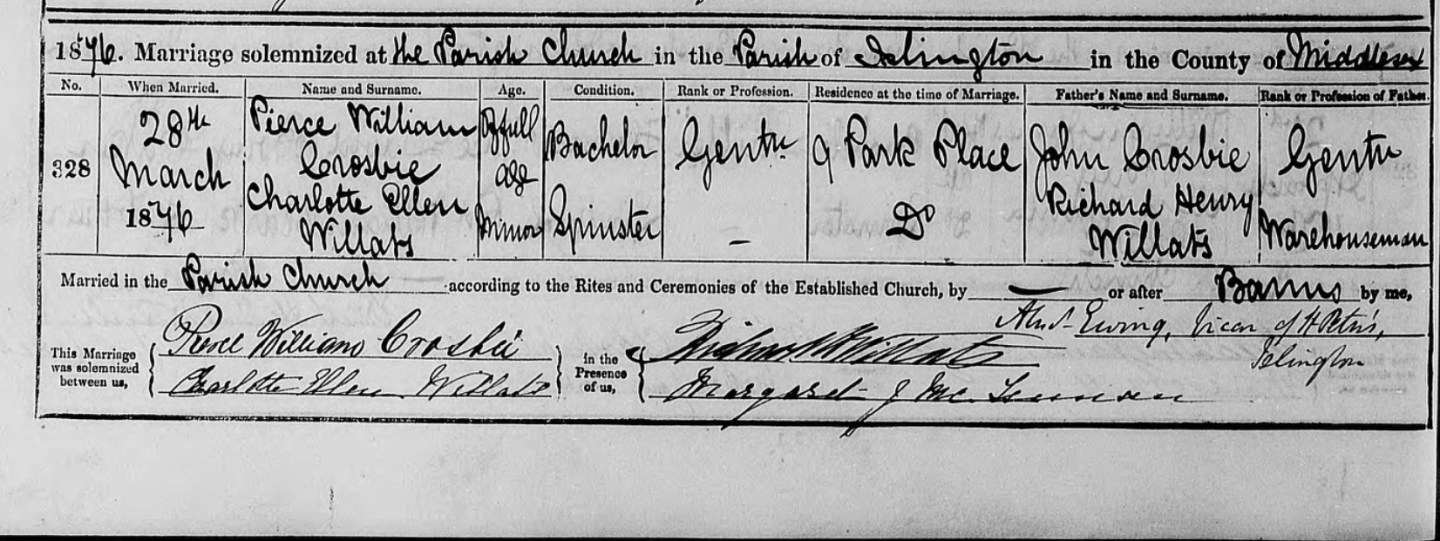 1876. Marriage solemnized at the Parish Church in the Parish of Islington in the County of Middlesex
No. When Married. Name and Surname. Age. Condition. Rank or Profession. Residence at the time of Marriage. Father's Name and Surname. Rank or Profession of Father.
328 28th March 1876 Pierce William Crosbie Of full age Bachelor Gentn. 9 Park Place John Crosbie Gentn
Charlotte Ellen Willats Minor Spinster – Do Richard Henry Willats Warehouseman
Married in the Parish Church according to the Rites and Ceremonies of the Established Church, by — or after Banns by me,
Ewing, Vicar of St Peter's, Islington
This Marriage was solemnized between us, Pierce William Crosbie
Charlotte Ellen Willats
in the Presence of us, Richard H Willats
Margaret J Mc